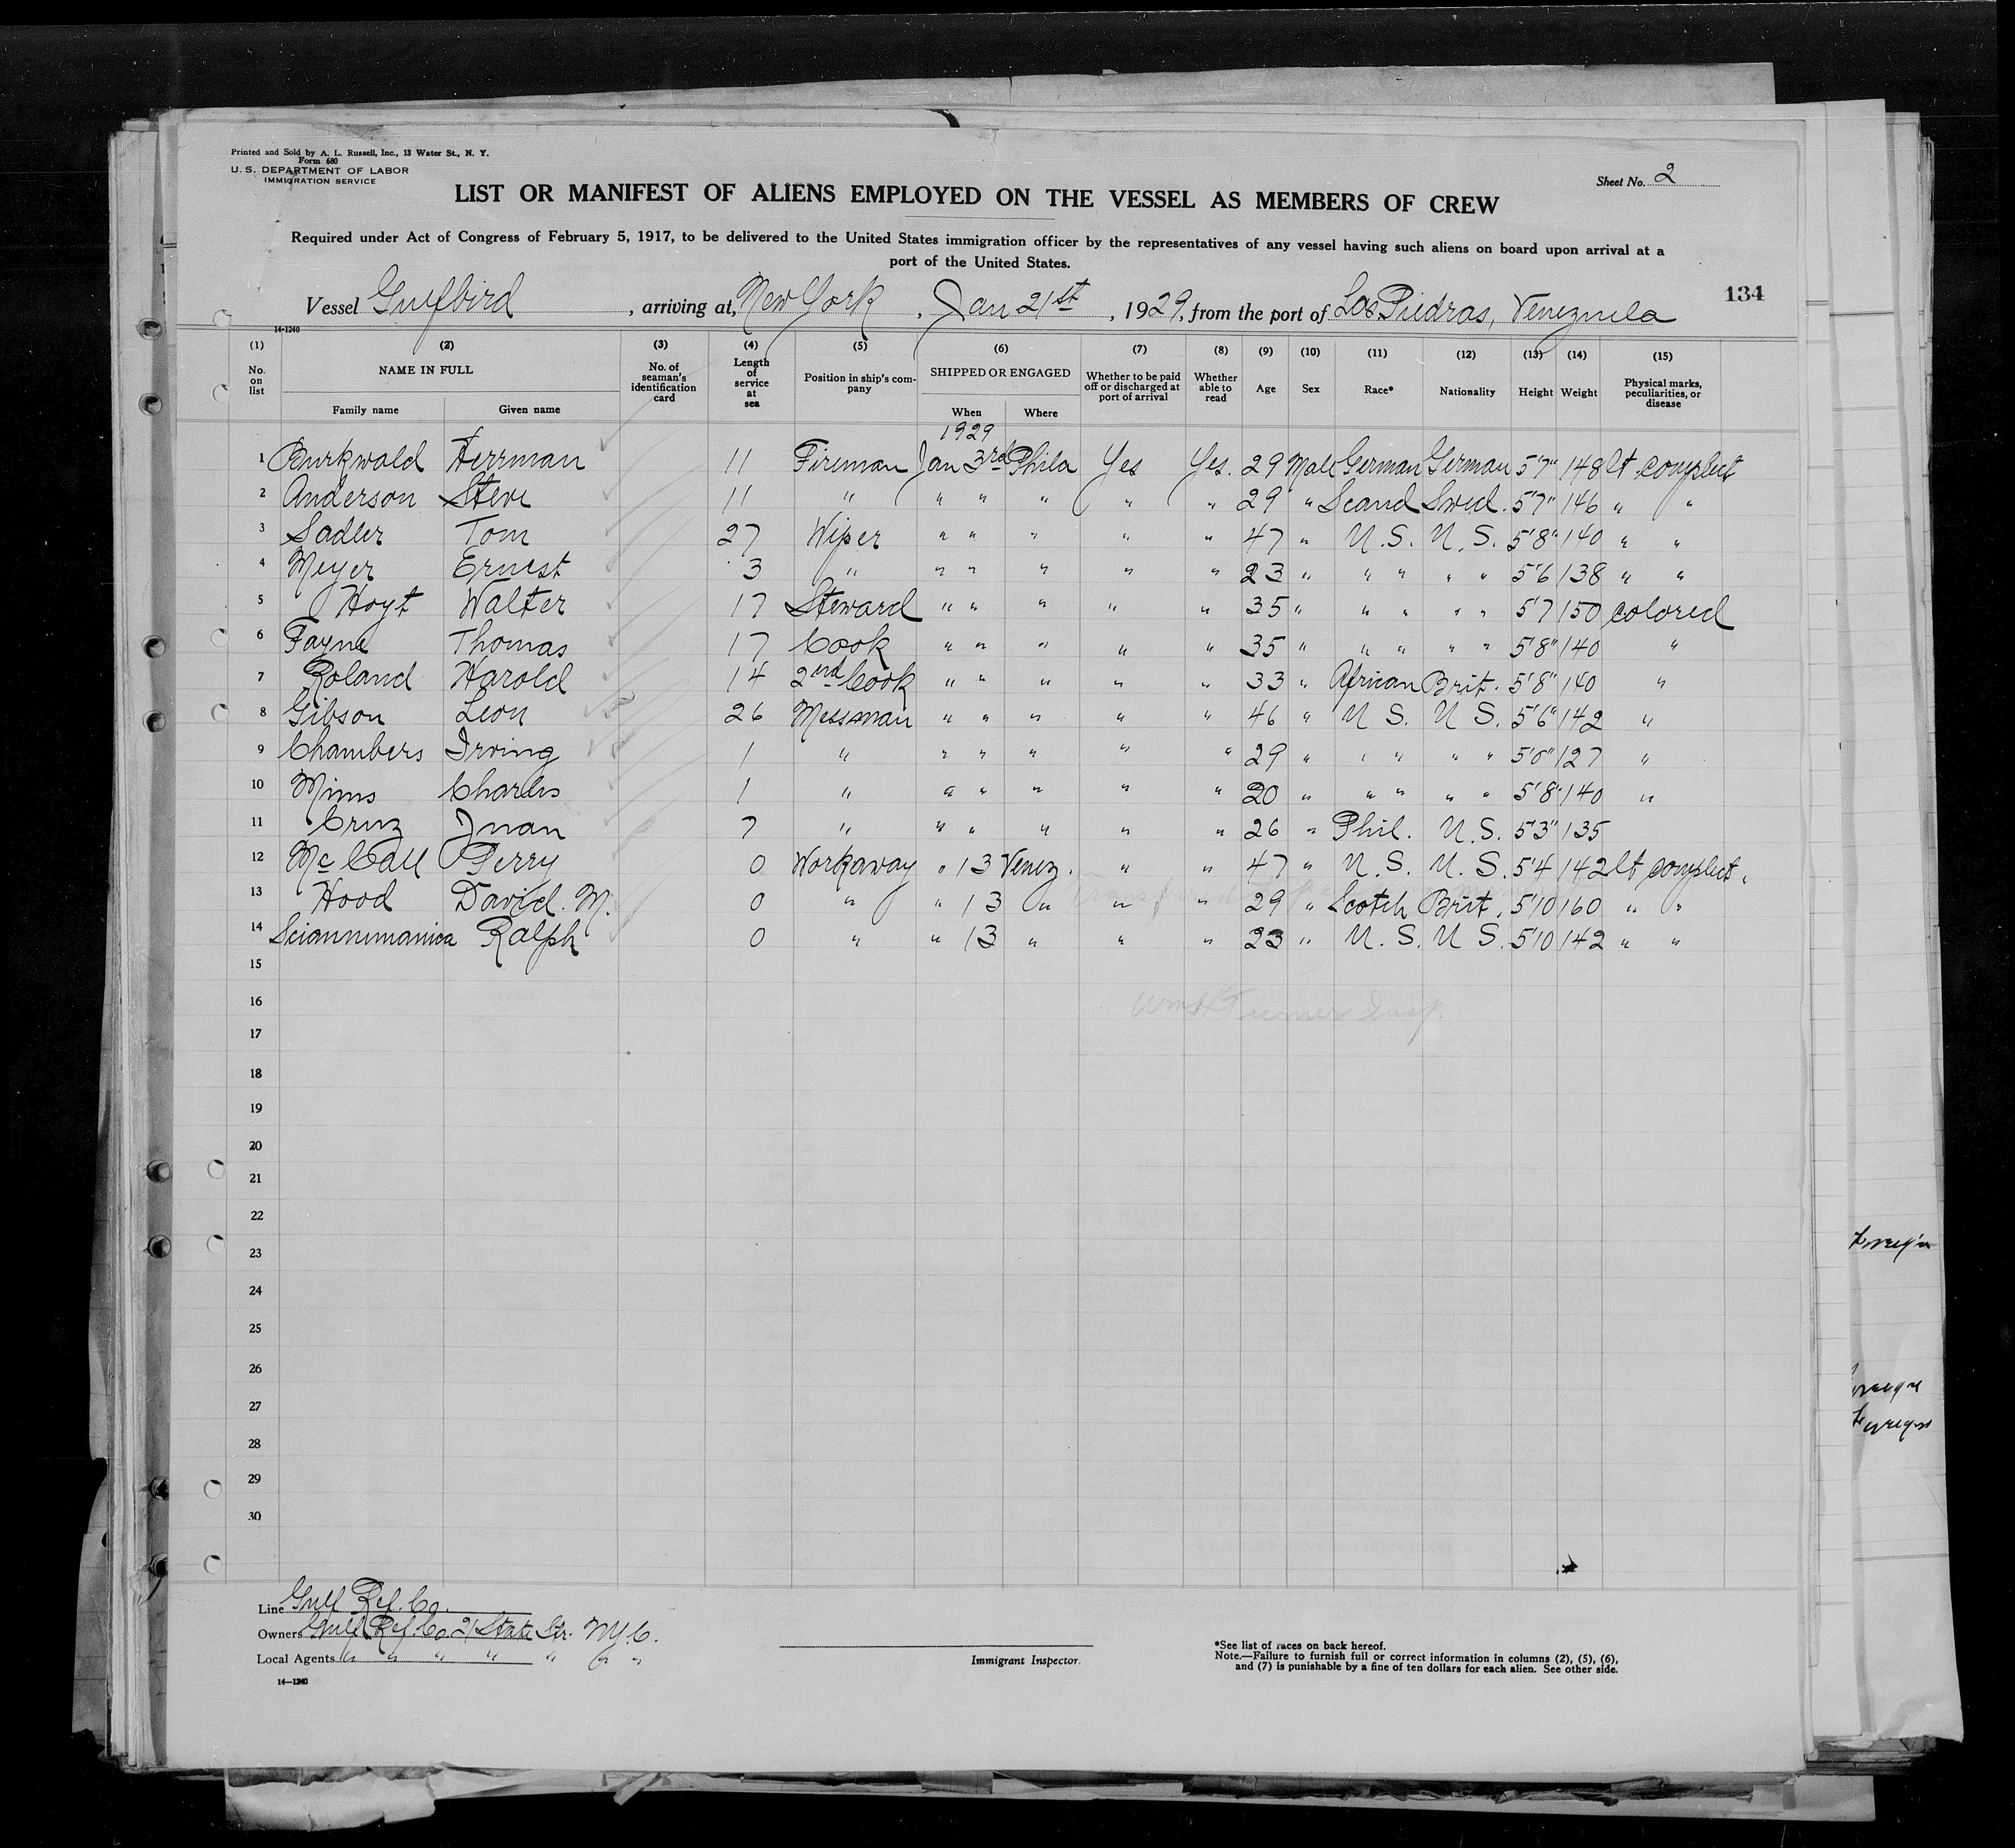 Printed and Sold by A. L. Russell, Inc., 13 Water St., N. Y.
Form 680
U. S. DEPARTMENT OF LABOR
IMMIGRATION SERVICE
Sheet No. 2
LIST OR MANIFEST OF ALIENS EMPLOYED ON THE VESSEL AS MEMBERS OF CREW
Required under Act of Congress of February 5, 1917, to be delivered to the United States immigration officer by the representatives of any vessel having such aliens on board upon arrival at a
port of the United States.
134
Vessel Gulfbird, arriving at, New York, Jan 21st, 1929, from the port of Las Piedras, Venezuela
14-1240
(1) (2) (3) (4) (5) (6) (7) (8) (9) (10) (11) (12) (13) (14) (15)
No. on list NAME IN FULL No. of seaman's identification card Length of service at sea Position in ship's company SHIPPED OR ENGAGED Whether to be paid off or discharged at port of arrival Whether able to read Age Sex Race* Nationality Height Weight Physical marks, peculiarities, or disease
Family name Given name When Where
1929
1 Burkwald Herrman 11 Fireman Jan 3rd Phila Yes Yes. 29 Male German German 5'7" 148 lt complect
2 Anderson Steve 11 " " " " " " 29 " Scand Swed. 5'7" 146 " "
3 Sadler Tom 27 Wiper " " " " " 47 " U.S. U.S. 5'8" 140 " "
4 Meyer Ernest 3 " " " " " " 23 " " " " " 5'6 138 " "
5 Hoyt Walter 17 Steward " " " " " 35 " " " " " 5'7 150 colored
6 Fayne Thomas 17 Cook " " " " " 35 " " " " " 5'8" 140 "
7 Roland Harold 14 2nd Cook " " " " " 33 " African Brit. 5'8" 140 "
8 Gibson Leon 26 Messman " " " " " 46 " U S. U S. 5'6" 142 "
9 Chambers Irving 1 " " " " " " 29 " " " " " 5'0" 127 "
10 Mims Charles 1 " " " " " " 20 " " " " " 5'8" 140 "
11 Cruz Juan 7 " " " " " " 26 " Phil. U.S. 5'3" 135
12 McCall Perry 0 Workaway " 13 Venez. " " 47 " U.S. U.S. 5'4 142 lt complect.
13 Hood David. M. 0 " " 13 " " " 29 " Scotch Brit. 5'10 160 " "
14 Sciannimanica Ralph 0 " " 13 " " " 23 " U.S. U S. 5'10 142 " "
15
16
Wm H Turner Insp.
17
18
19
20
21
22
23
24
25
26
27
28
29
30
Line Gulf Ref. Co.
Owners Gulf Ref. Co. 21 State Str. N.Y.C.
Local Agents " " " " " " "
14-1240
Immigrant Inspector.
*See list of races on back hereof.
Note.—Failure to furnish full or correct information in columns (2), (5), (6),
and (7) is punishable by a fine of ten dollars for each alien. See other side.